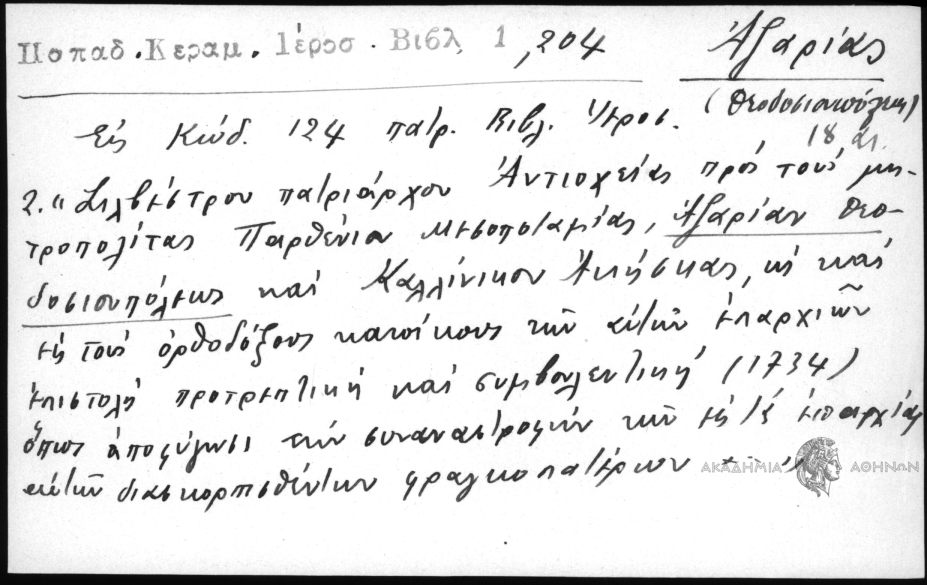 Παπαδ. Κεραμ. Ιεροσ. Βιβλ, 1 ,204 Ἀζαρίας
(Θεοδοσιουπόλεως)
Εἰς Κώδ. 124 πατρ. Βιβλ. Ἱεροσ. 18 αἰ.
2. "Σιλβέστρου πατριάρχου Ἀντιοχείας πρός τούς μη-
τροπολίτας Παρθένιον Μεσοποταμίας, Ἀζαρίαν Θεο-
δοσιουπόλεως καί Καλλίνικον Ἀκίσκας, ὡς καί
εἰς τούς ὀρθοδόξους κατοίκους τῶν αὐτῶν ἐπαρχιῶν
ἐπιστολή προτρεπτική καί συμβουλευτική (1734)
ὅπως ἀποφύγωσι τήν συναναστροφήν τῶν εἰς τάς ἐπαρχίας
αὐτῶν διασκορπισθέντων φραγκοπατέρων
ΑΚΑΔΗΜΙΑ ΑΘΗΝΩΝ